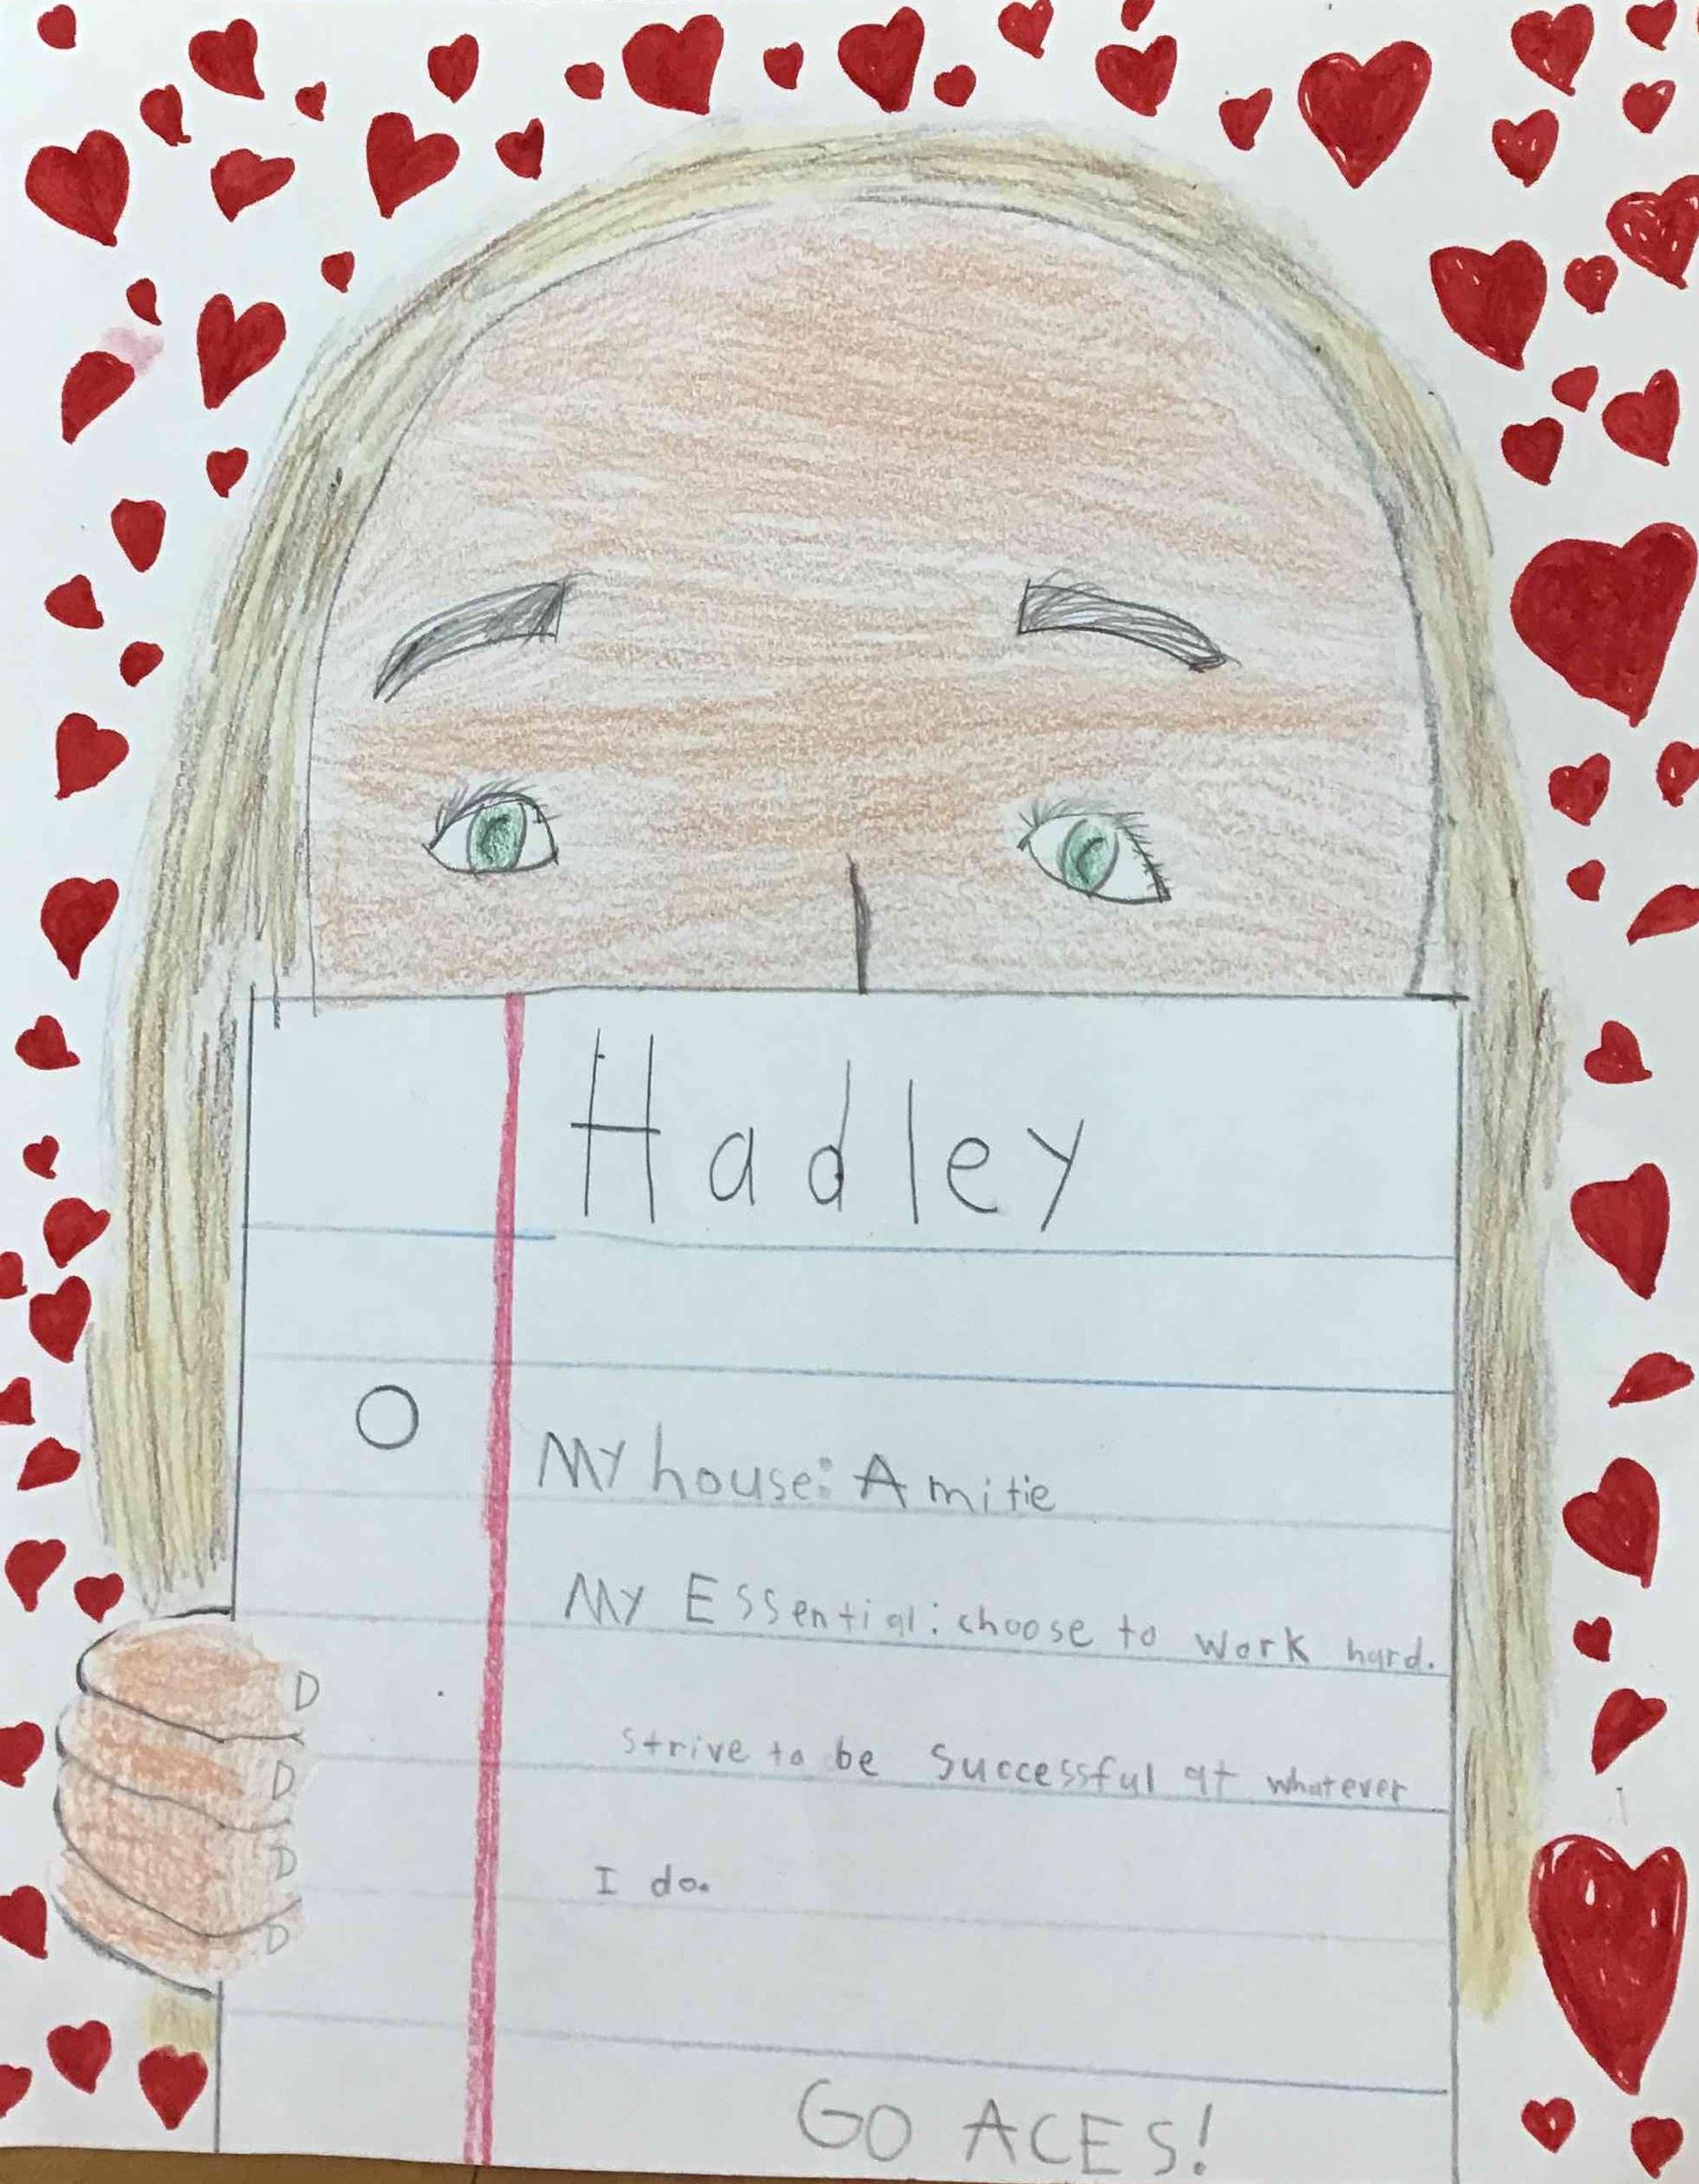 Hadley
My house: Amitie
My Essential: choose to work hard.
strive to be successful at whatever
I do.
GO ACES!